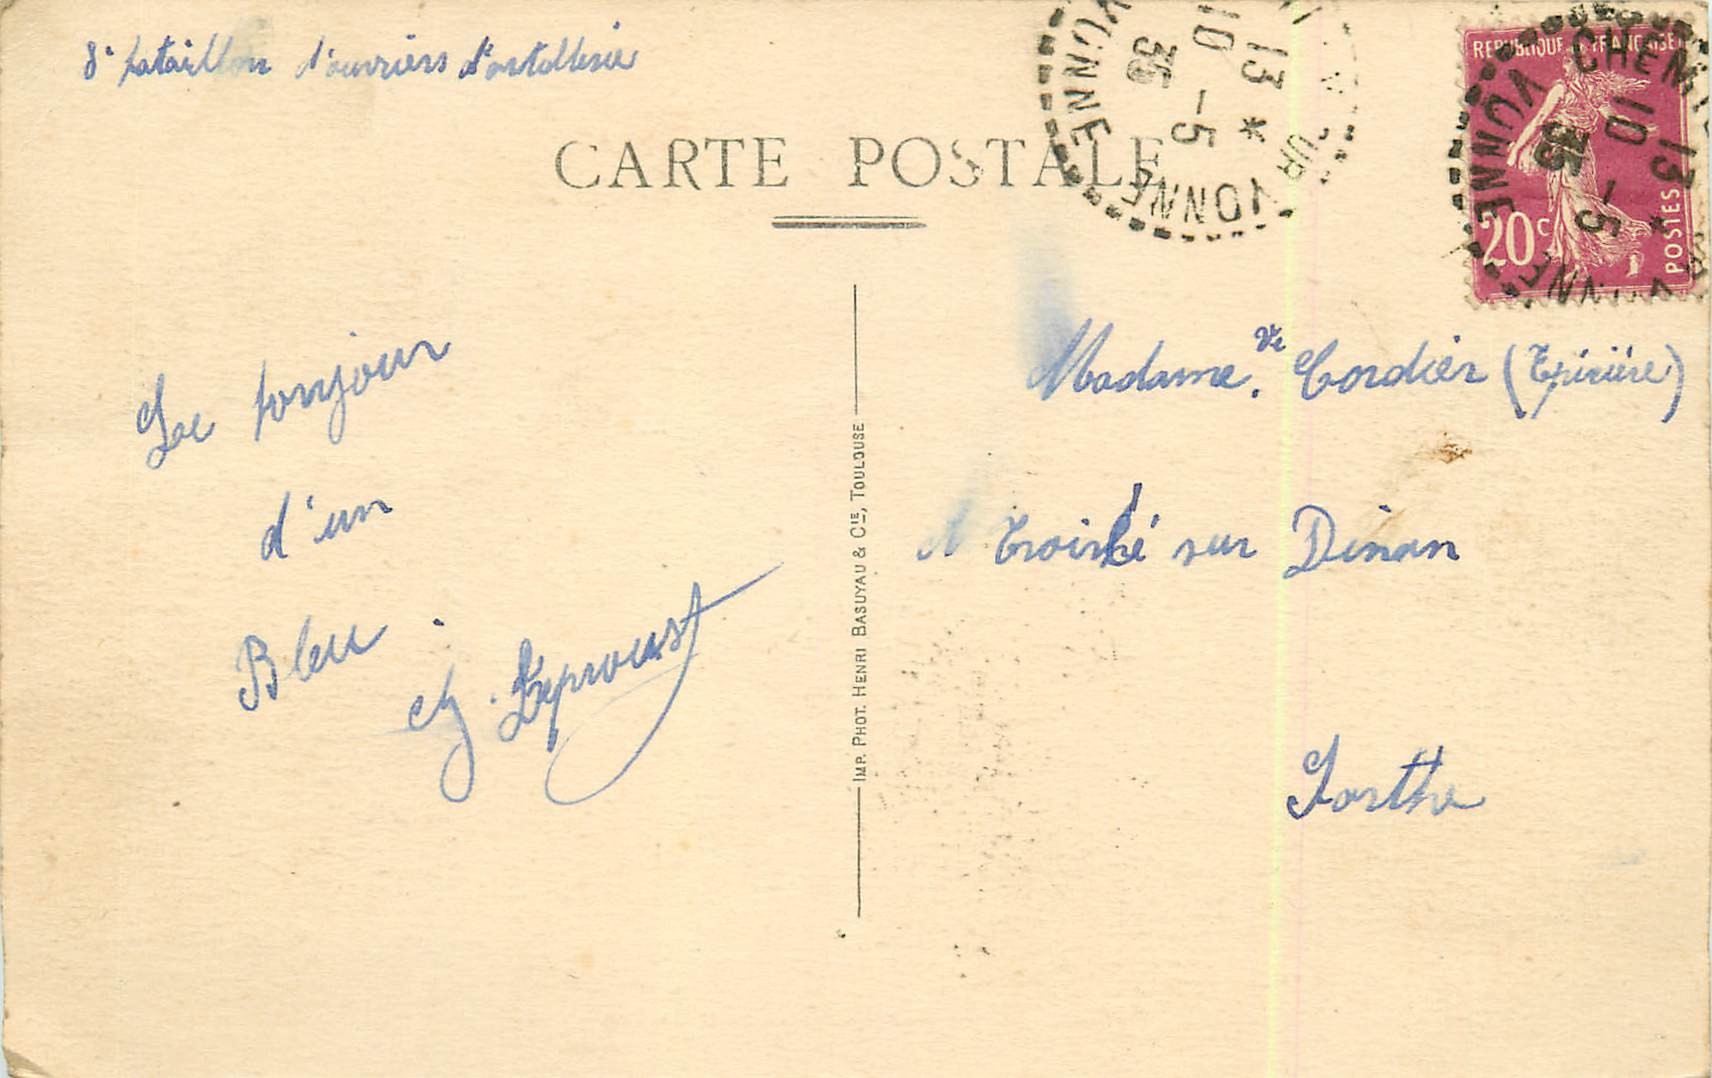 8e bataillon d'ouvriers d'artillerie
CARTE POSTALE
YONNE
13 *
10 -5
35
UR YONNE
REPUBLIQUE FRANÇAISE
20c
POSTES
CHEM
13 *
10 -5
35
YONNE
Le bonjour
d'un
Bleu
Ch. Leproust
IMP. PHOT. HENRI BASUYAU & CIE, TOULOUSE
Madame Ve Cordier (Epicière)
A Eroiské sur Dinan
Sarthe